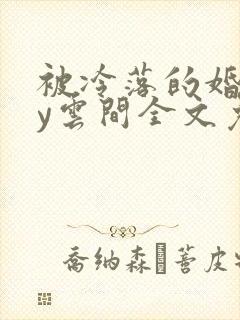 被冷落的婚
y雲間全文
喬納森 蒈皮